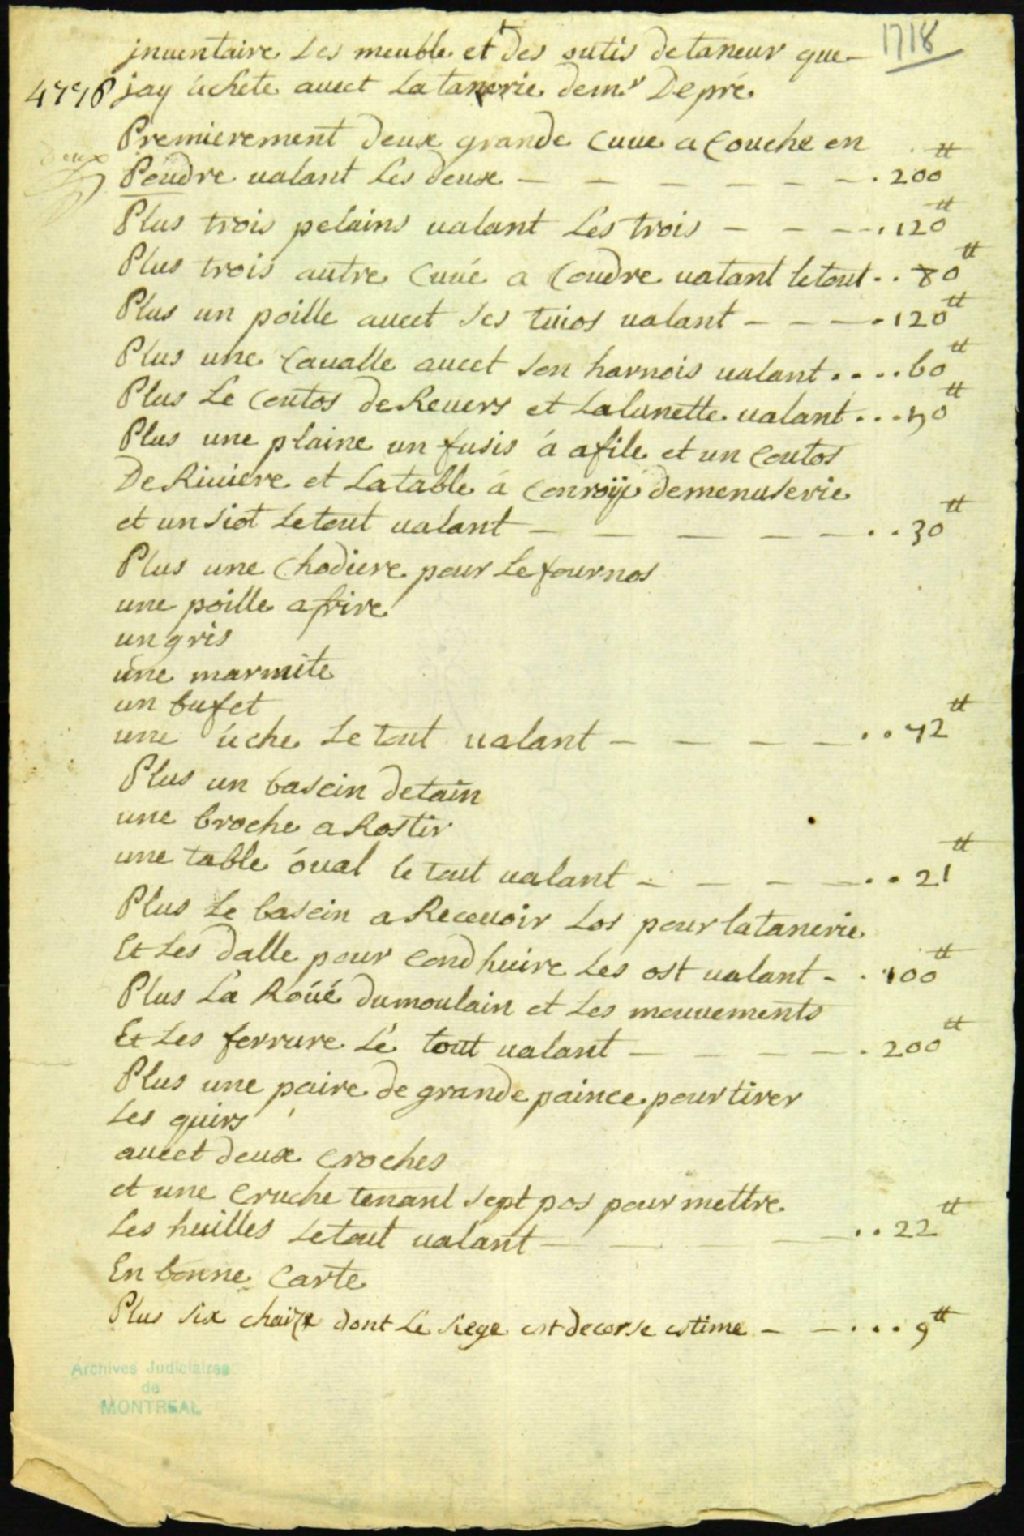 1718
jnuentaire Les meuble et des outis de taneur que
4778 jay ùchéte auect La tanerie de mr Depré
Premierement deux grande Cuue a Couche en
deux
Poudre ualant Les deux — — — — — — . 200 ₶
Plus trois pelains ualant Les trois — — — . . 120 ₶
Plus trois autre Cuué a Coudre ualant le tout . . 80 ₶
Plus un poille auect ses tuios ualant — — — . 120 ₶
Plus une Caualle auect son harnois ualant . . . . 60 ₶
Plus Le Coutos de Reuers et La lunette ualant . . . 50 ₶
Plus une plaine un fusis á afile et un Coutos
De Riuiere et La table á Conroÿé de menuserie
et un siot Le tout ualant — — — — — . . 30 ₶
Plus une Chodiere pour Le fournos
une poille a frire
un gris
une marmite
un bufet
une ùche Le tout ualant — — — — — . . 72 ₶
Plus un bascin detain
une broche a Rostir
une table óual le tout ualant — — — — . . 21 ₶
Plus Le bascin a Receuoir Los pour la tanerie
Et Les dalle pour Condhuire Les ost ualant — . 100 ₶
Plus La Roüé du moulain et Les mouuements
Et Les ferrure Lé tout ualant — — — — — . 200 ₶
Plus une paire de grande paince pour tirer
Les quirs
auect deux Croches
et une Cruche tenant sept pos pour mettre
Les huilles Le tout ualant — — — — . . 22 ₶
En bonne Carte
Plus six chaize dont Le siege est decorse estime — — . . . 9 ₶
Archives Judiciaires
de
MONTREAL